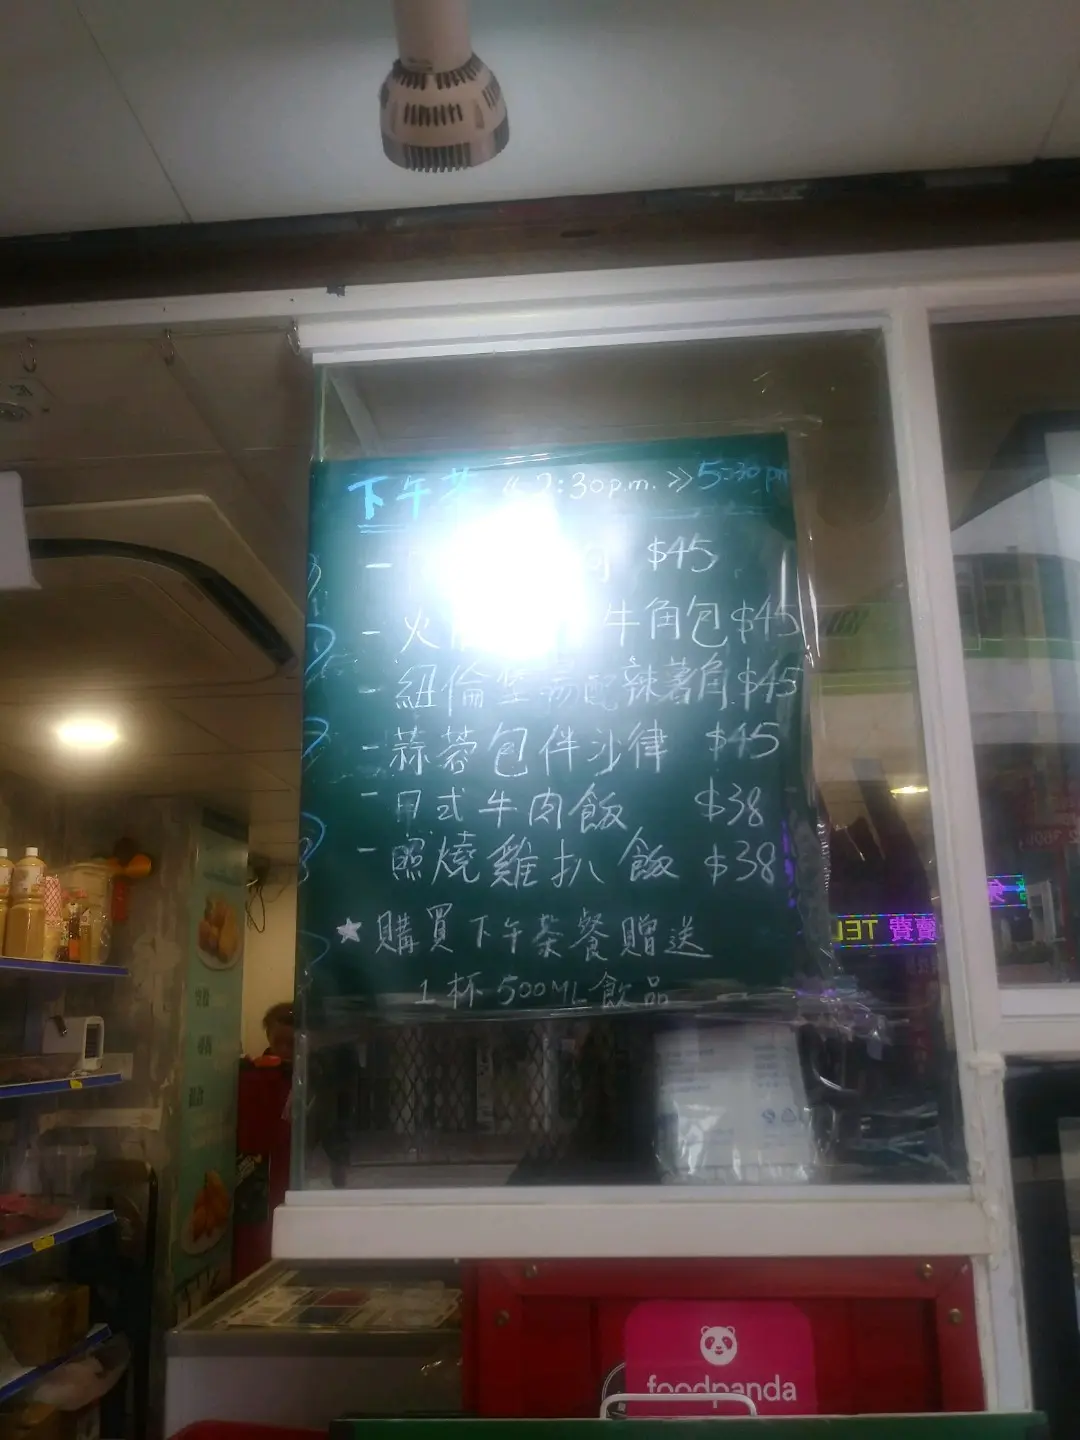 下午茶 《 2:30p.m. 》 5:30pm
- $45
- 火 牛角包 $45
- 紐倫堡湯配辣薯角 $45
- 蒜蓉包伴沙律 $45
- 日式牛肉飯 $38
- 照燒雞扒飯 $38
★ 購買下午茶餐贈送
1杯500ML飲品
foodpanda